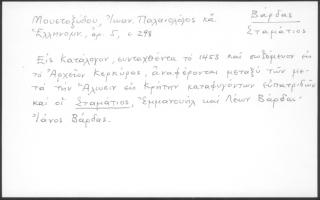 Μουστοξύδου, Ἰωαν. Παλαιολόγος κα
Ἑλληνομν., ἀρ. 5, σ. 298
Βάρδας
Σταμάτιος
Εἰς Κατάλογον, συνταχθέντα τὸ 1453 καὶ σωζόμενον εἰς
τὸ Ἀρχεῖον Κερκύρας, ἀναφέρονται μεταξὺ τῶν με-
τὰ τὴν Ἅλωσιν εἰς Κρήτην καταφυγόντων εὐπατριδῶν
καὶ οἱ Σταμάτιος, Ἐμμανουὴλ καὶ Λέων Βάρδας·
Ἰάνος Βάρδας.